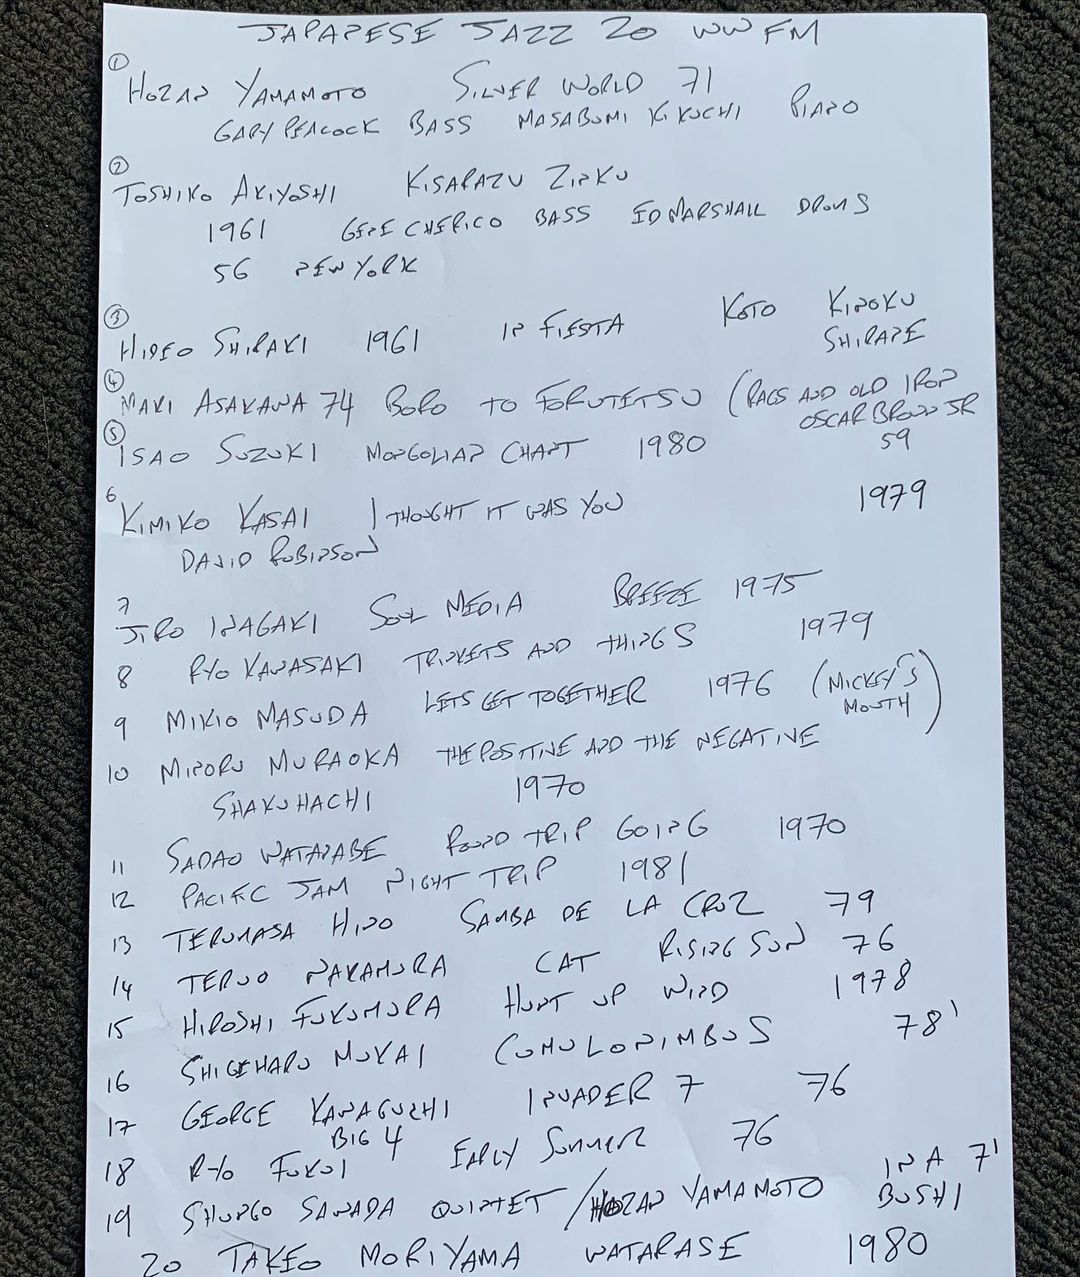 JAPANESE JAZZ 20 WWFM
① HOZAN YAMAMOTO SILVER WORLD 71
GARY PEACOCK BASS MASABUMI KIKUCHI PIANO
② TOSHIKO AKIYOSHI KISARAZU ZINKU
1961 GENE CHERICO BASS ED MARSHALL DRUMS
56 NEW YORK
③ HIDEO SHIRAKI 1961 IN FIESTA KOTO KINOKU
SHIRANE
④ MAKI ASAKAWA 74 BORO TO FORUTETSU (RAGS AND OLD IRON
OSCAR BROWN JR
59
⑤ ISAO SUZUKI MONGOLIAN CHANT 1980
6 KIMIKO KASAI I THOUGHT IT WAS YOU 1979
DAVID ROBINSON
7 JIRO INAGAKI SOUL MEDIA BREEZE 1975
8 RYO KAWASAKI TRINKETS AND THINGS 1979
9 MIKIO MASUDA LETS GET TOGETHER 1976 (MICKEY'S
MOUTH)
10 MINORU MURAOKA THE POSITIVE AND THE NEGATIVE
SHAKUHACHI 1970
11 SADAO WATANABE ROUND TRIP GOING 1970
12 PACIFIC JAM NIGHT TRIP 1981
13 TERUMASA HINO SAMBA DE LA CRUZ 79
14 TERUO NAKAMURA CAT RISING SUN 76
15 HIROSHI FUKUMURA HUNT UP WIND 1978
16 SHIGEHARU MUKAI CUMULONIMBUS 78'
17 GEORGE KAWAGUCHI INVADER 7 76
BIG 4
18 RYO FUKUI EARLY SUMMER 76
19 SHUNGO SAWADA QUINTET / HOZAN YAMAMOTO INA 71
BUSHI
20 TAKEO MORIYAMA WATARASE 1980